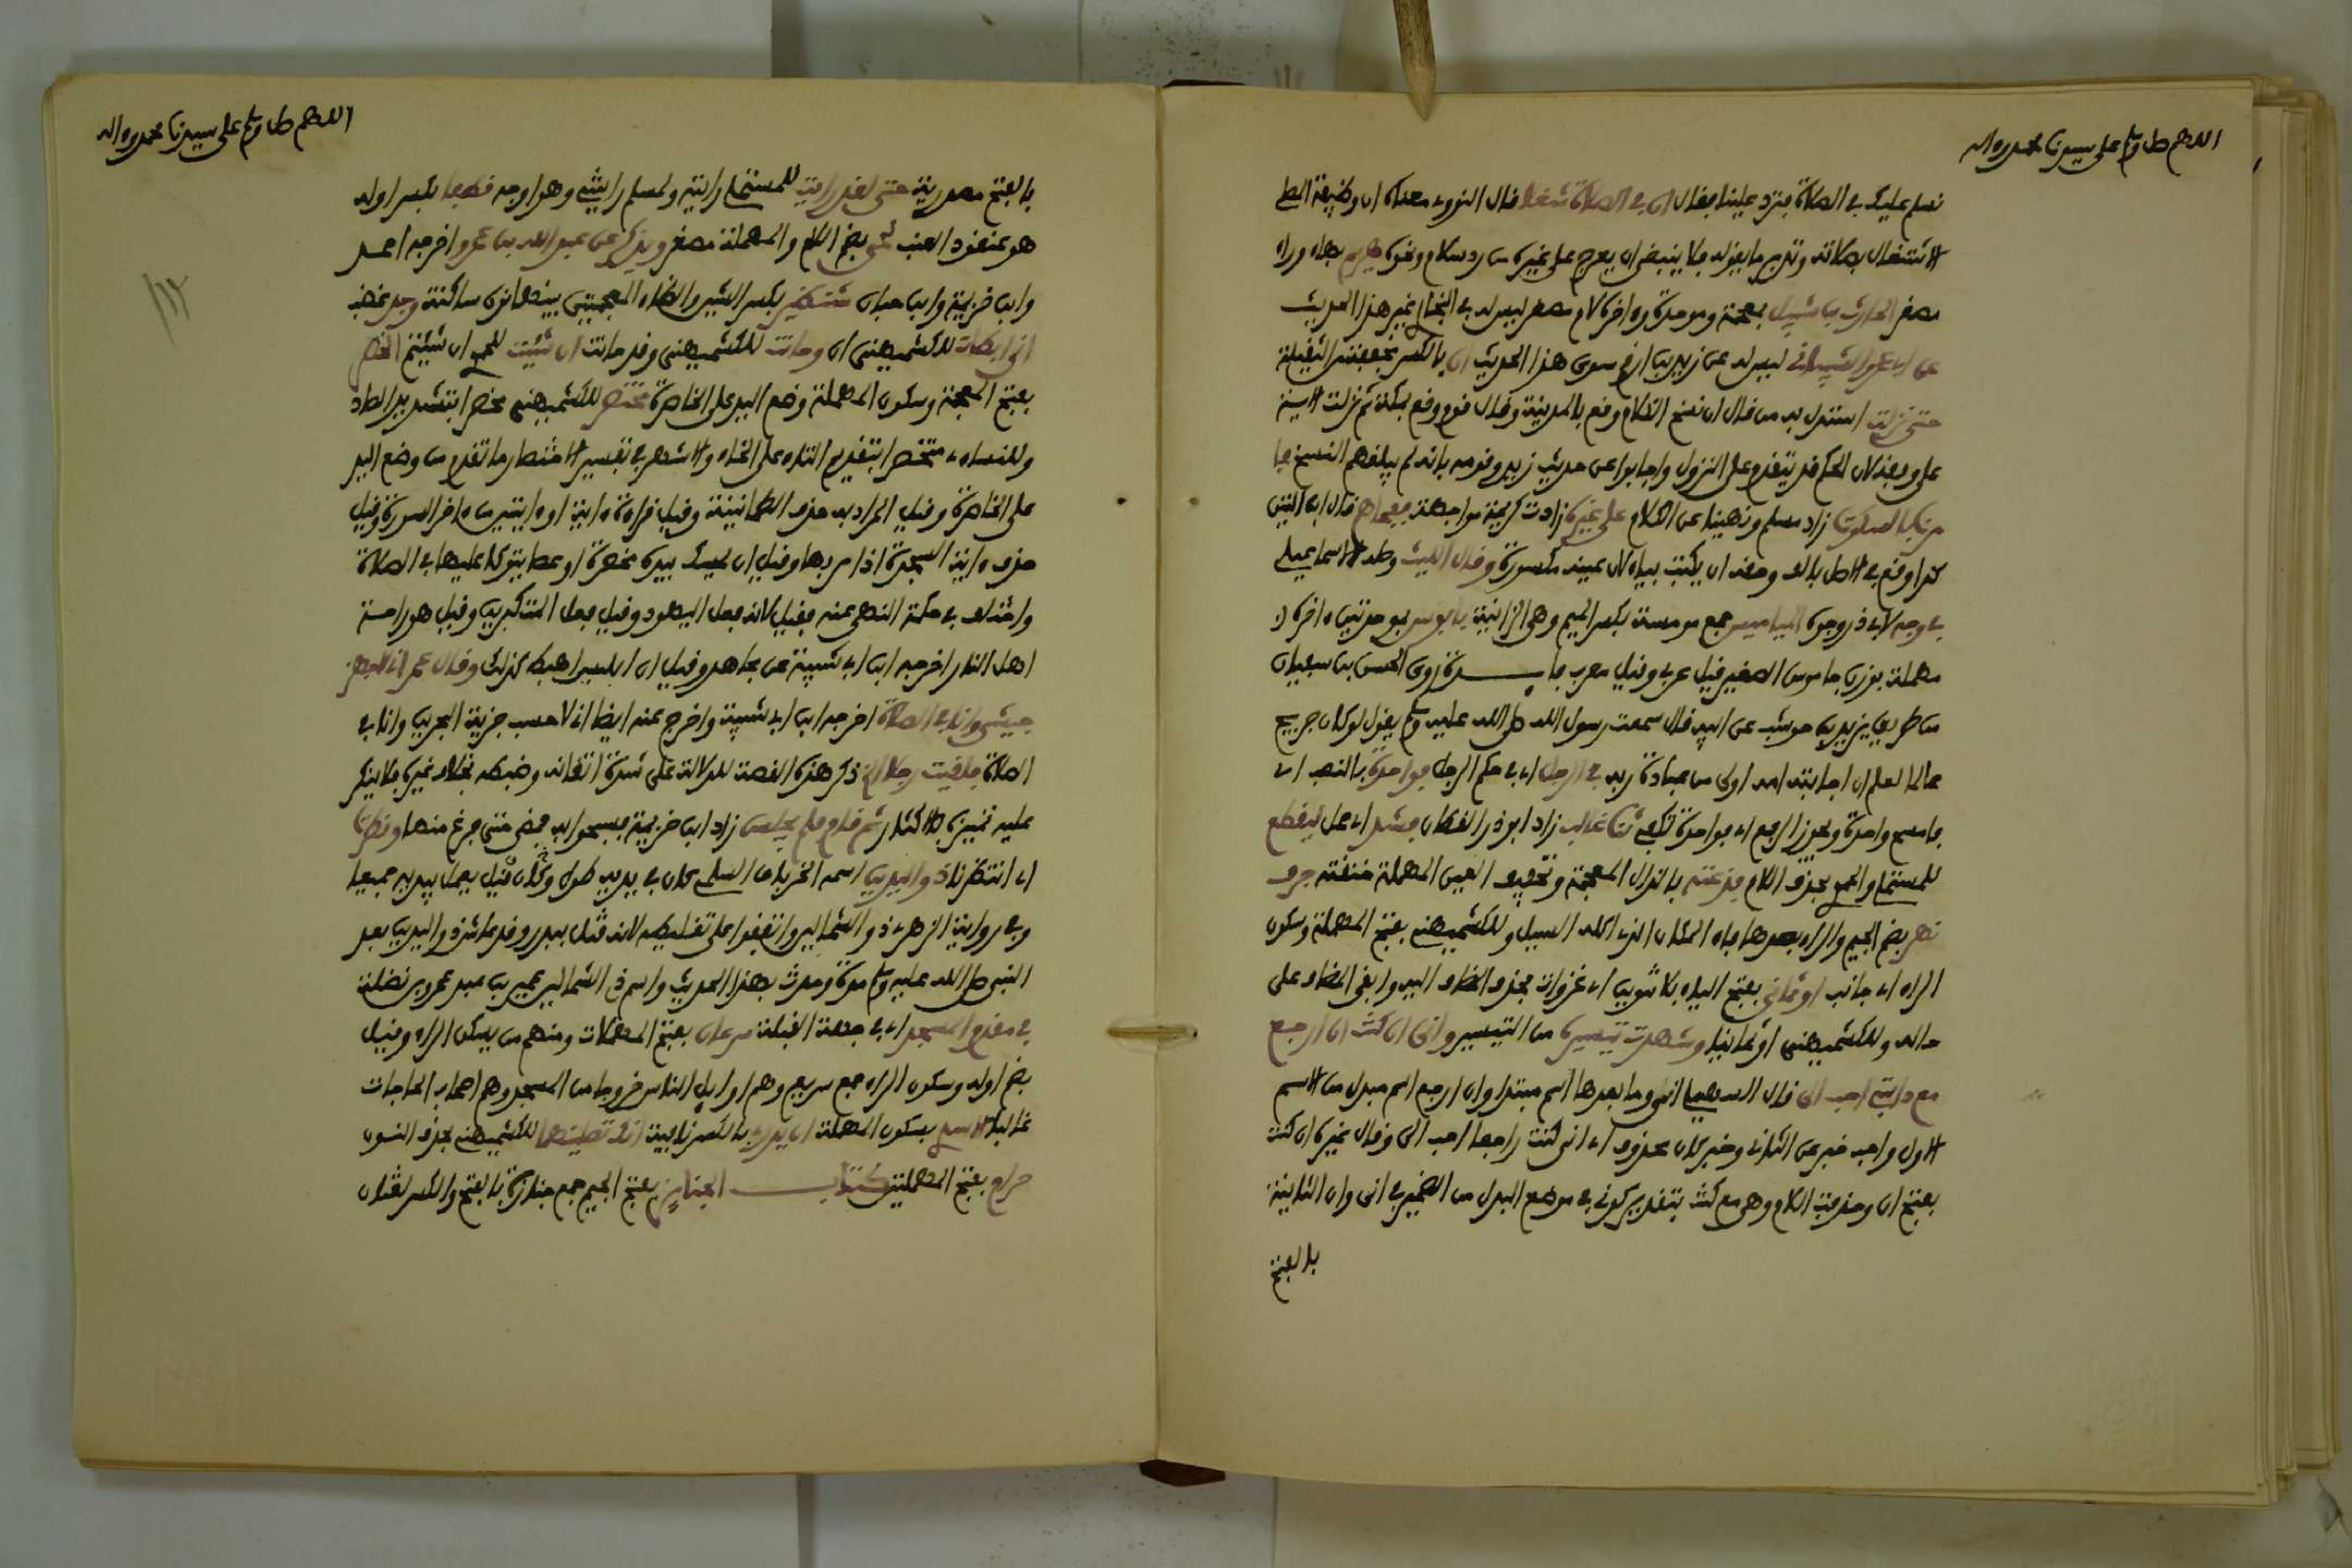 اللهم صل وسلم على سيدنا محمد وءاله
نسلم عليك في الصلاة فترد علينا فقال ان في الصلاة شغلا قال النووي معناه ان وظيفة المصلي
الاشتغال بصلاته وتدبر ما يقوله فلا ينبغي ان يعرج على غيره من رد سلام ونحوه هريم بهاء وراء
مصغر الحارث بن شبيل بمعجمة وموحدة وءاخره لام مصغر ليس له في البخاري غير هذا الحديث
عن ابي عمرو الشيباني ليس له عن زيد بن ارقم سوى هذا الحديث ان بالكسر مخففة من الثقيلة
حتى نزلت استدل به من قال ان نسخ الكلام وقع بالمدينة وقال قوم وقع بمكة ثم نزلت الاية
على وفقه لان الحكم قد يتقدم على النزول واجابوا عن حديث زيد وقومه بانه لم يبلغهم النسخ
فامرنا بالسكوت زاد مسلم ونهينا عن الكلام على غيره زادت كريمة مواجهة قال ابن التين
كذا وقع في الاصل بالف وحقه ان يكتب بياء لان عينه مكسورة وقال الليث وصله الاسماعيلي
في وجه لابي ذر وجوه المياميس جمع مومسة بكسر الميم وهي الزانية يا بابوس بموحدتين ءاخره
مهملة بوزن جاموس الصغير قيل عربي وقيل معرب فايدة روى الحسن بن سفيان
من طريق يزيد بن حوشب عن ابيه قال سمعت رسول الله صلى الله عليه وسلم يقول لو كان جريج
عالما لعلم ان اجابته امه اولى من عبادة ربه في الرجل اي في حكم الرجل فواحدة بالنصب اي
فامسح واحدة ويجوز الرفع اي فواحدة تكفي ثنا غالب زاد ابو ذر القطان فشد اي حمل ليقطع
للمستملي والحموي بحذف اللام فذعته بالذال المعجمة وتخفيف العين المهملة خنقته جرف
نهر بضم الجيم والراء بعدها فاء المكان الذي اكله السيل وللكشميهني بفتح المهملة وسكون
الراء اي جانب او ثماني بفتح الياء بلا تنوين اي غزوات بحذف المضاف اليه وابقى المضاف على
حاله وللكشميهني او ثمانيا وشهدت تيسيره من التيسير واني ان كنت ان ارجع
مع دابتي احب الي قال السهيلي اني وما بعدها اسم مبتدا وان ارجع اسم مبدل من الاسم
الاول واحب خبر عن الثاني وخبر كان محذوف اي اني كنت راجعا احب الي وقال غيره ان كنت
بفتح ان وحذفت اللام وهي مع كنت بتقدير كوني في موضع البدل من الضمير في اني وان الثانية
بالفتح
اللهم صل وسلم على سيدنا محمد وءاله
بالفتح مصدرية حتى لقد رايت للمستملي رايته ولمسلم رايتني وهو اوجه قطفا بكسر اوله
هو عنقود العنب لحي بضم اللام والمهملة مصغر ويذكر عن عبد الله بن عمرو اخرجه احمد
وابن خزيمة وابن حبان شنظير بكسر الشين والظاء المعجمتين بينهما نون ساكنة
اني ابطات للكشميهني ان وحانت للكشميهني وقد حانت ان شيت للحموي ان شيتم الخصر
بفتح المعجمة وسكون المهملة وضع اليد على الخاصرة مختصرا للكشميهني مخصرا بتشديد الصاد
وللنساءي متخصرا بتقديم التاء على الخاء والاشهر في تفسير الاختصار ما تقدم من وضع اليد
على الخاصرة وقيل المراد به حذف الطمانينة وقيل قراءة ءاية او ءايتين من ءاخر السورة وقيل
حذف ءاية السجدة اذا مر بها وقيل ان يمسك بيده مخصرة او عصا يتوكا عليها في الصلاة
واختلف في حكمة النهي عنه فقيل لانه فعل اليهود وقيل فعل المتكبرين وقيل هو راحة
اهل النار اخرجه ابن ابي شيبة عن مجاهد وقيل ان ابليس اهبط كذلك وقال عمر اني لاجهز
جيشي وانا في الصلاة اخرجه ابن ابي شيبة واخرج عنه ايضا اني لاحسب جزية البحرين وانا في
الصلاة فلقيت رجلا الخ ذكر هذه القصة للدلالة على شدة اتقانه وضبطه بخلاف غيره فلا ينكر
عليه تميزه بالاكثار ثم قام فلم يجلس زاد ابن خزيمة فسبحوا به فمضى حتى فرغ منها ونظرنا
اي انتظرنا ذو اليدين اسمه الخرباق السلمي كان في يديه طول وكان قيل يعمل بيديه جميعا
وفي رواية الزهري ذو الشمالين واتفقوا على تغليطه لانه قتل ببدر وقد عاش ذو اليدين بعد
النبي صلى الله عليه وسلم مدة وحدث بهذا الحديث واسم ذي الشمالين عمير بن عبد عمرو بن نضلة
في مقدم المسجد اي في جهة القبلة سرعان بفتح المهملات ومنهم من يسكن الراء وقيل
بضم اوله وسكون الراء جمع سريع وهم اوايل الناس خروجا من المسجد وهم اصحاب الحاجات
غالبا الاسدي بسكون المهملة ان يدري بالكسر نافية انك تصليهما للكشميهني بحذف النون
حرام بفتح المهملتين كتاب الجنايز بفتح الجيم جمع جنازة بالفتح والكسر لغتان